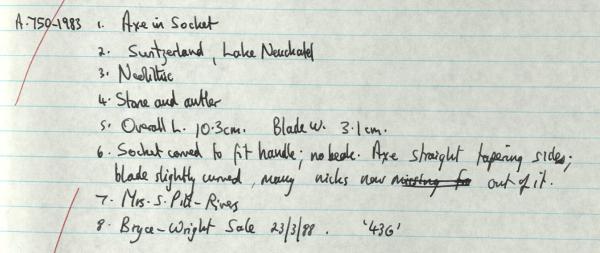 A.750-1983 1. Axe in Socket
2. Switzerland, Lake Neuchatel
3. Neolithic
4. Stone and antler
5. Overall L. 10.3cm. Blade W. 3.1cm.
6. Socket carved to fit handle; no beak. Axe straight tapering sides;
blade slightly curved, many nicks now missing fr out of it.
7. Mrs. S. Pitt-Rivers
8. Bryce-Wright Sale 23/3/88. '436'